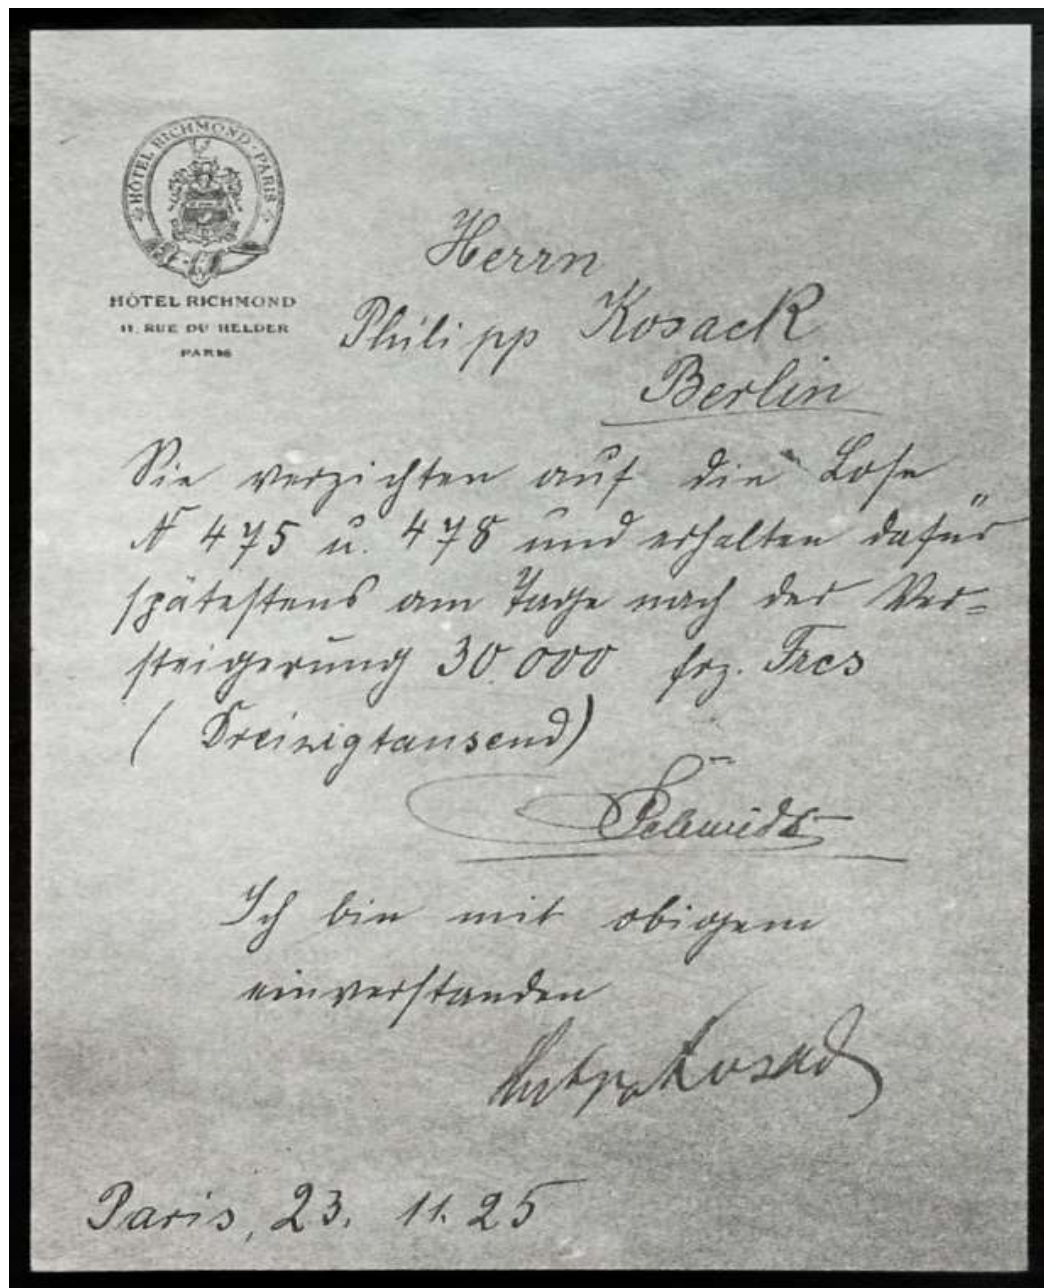 HÔTEL RICHMOND · PARIS
HÔTEL RICHMOND
11. RUE DU HELDER
PARIS
Herrn
Philipp Kosack
Berlin
Sie verzichten auf die Lose
N 475 u. 478 und erhalten dafür
spätestens am Tage nach der Ver=
steigerung 30.000 frz. Frcs
(Dreizigtausend)
Schmidt
Ich bin mit obigem
einverstanden
Kosack
Paris, 23. 11. 25